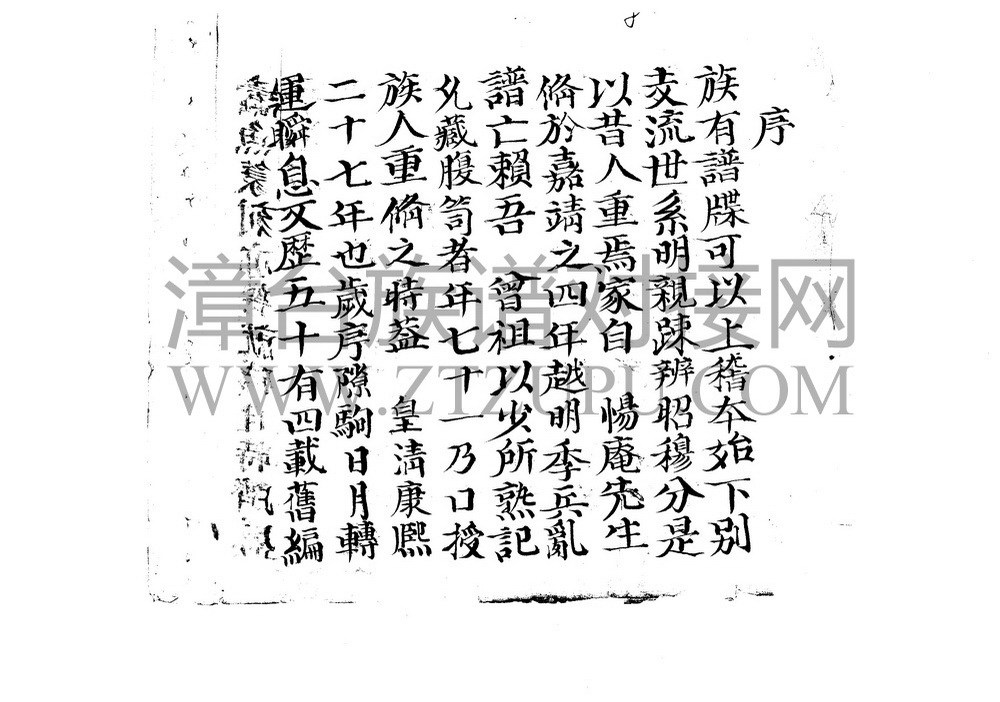 序
族有譜牒可以上稽夲始下別
支流世系明親踈辨昭穆分是
以昔人重焉家自　惕庵先生
脩於嘉靖之四年越明季兵亂
譜亡賴吾　曾祖以少所熟記
允藏腹笥者年七十一乃口授
族人重脩之時葢　皇清康熙
二十七年也歲序隙駒日月轉
運瞬息又歷五十有四載舊編
漳台族谱对接网
WWW.ZTZUPU.COM